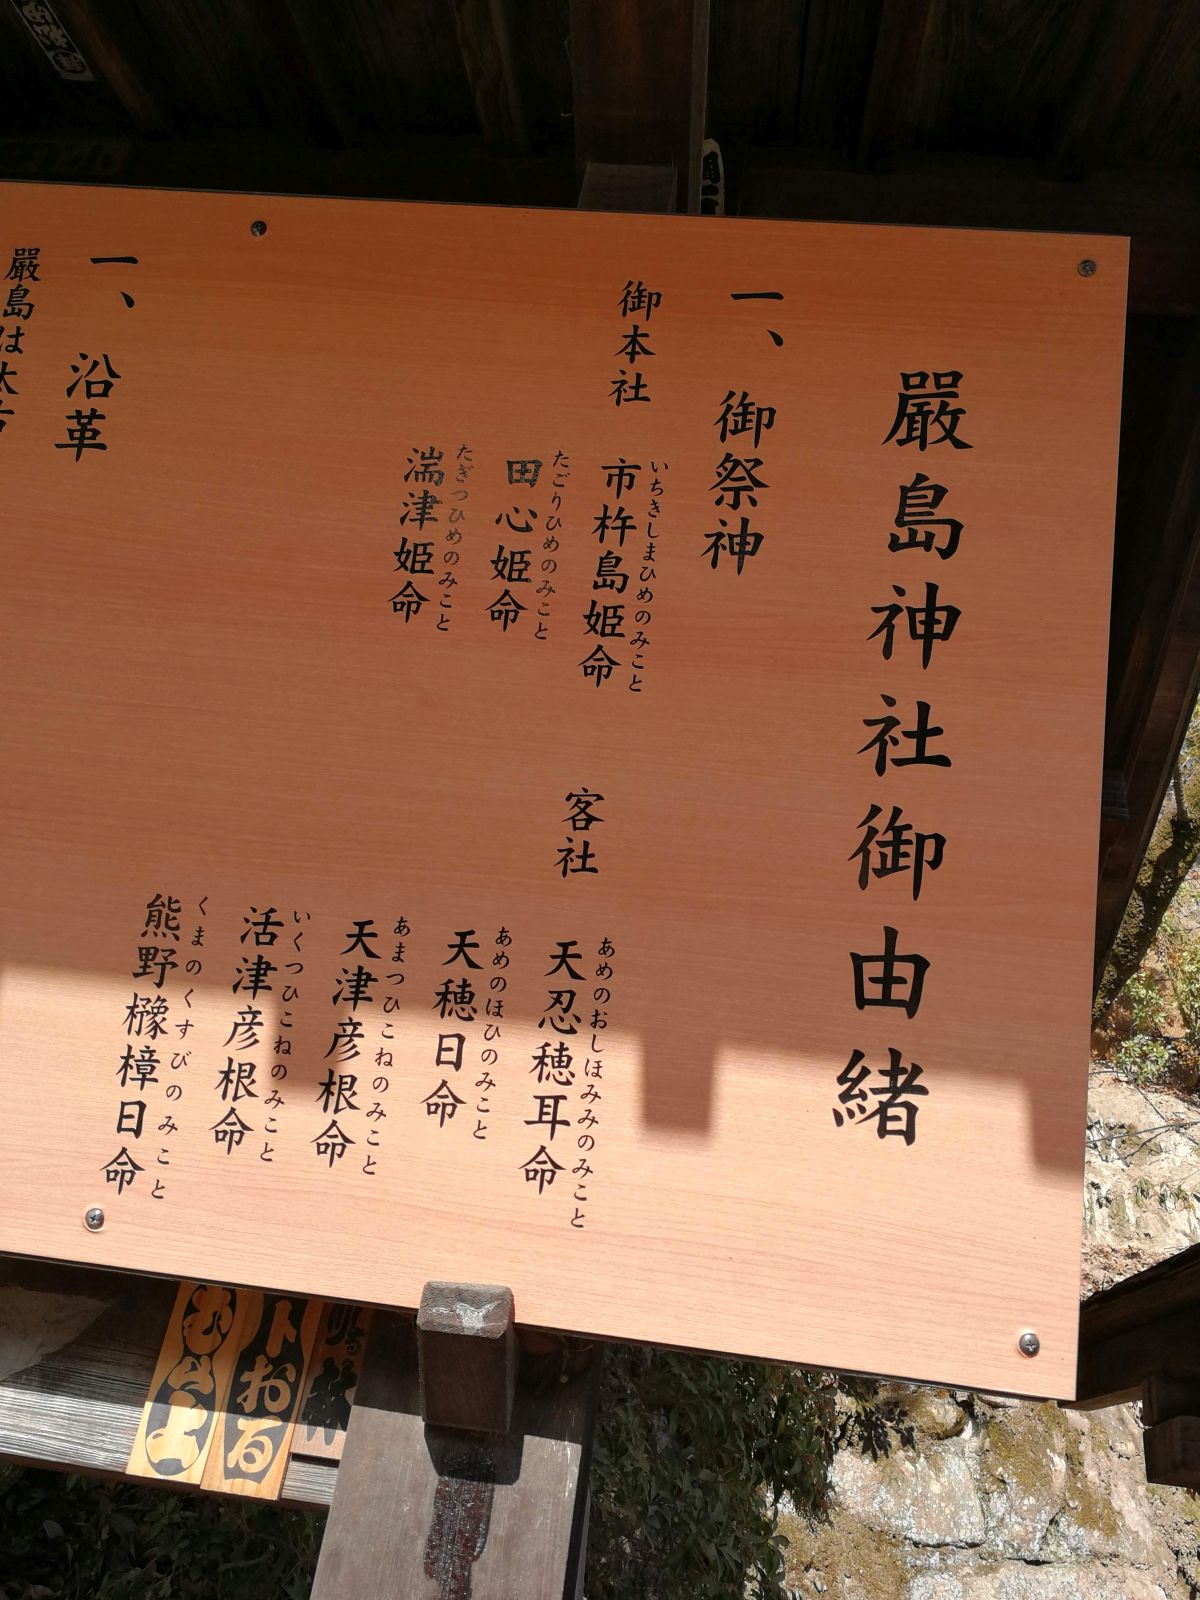 嚴島神社御由緒
一、御祭神
御本社
いちきしまひめのみこと
市杵島姫命
たごりひめのみこと
田心姫命
たぎつひめのみこと
湍津姫命
客社
あめのおしほみみのみこと
天忍穂耳命
あめのほひのみこと
天穂日命
あまつひこねのみこと
天津彦根命
いくつひこねのみこと
活津彦根命
くまのくすびのみこと
熊野沲樟日命
一、沿革
嚴島は太古